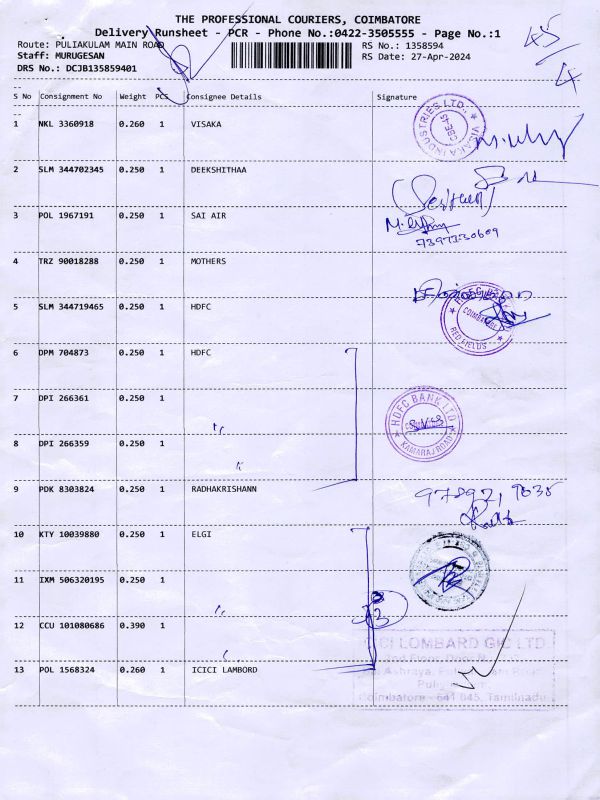 THE PROFESSIONAL COURIERS, COIMBATORE
Delivery Runsheet - PCR - Phone No.:0422-3505555 - Page No.:1
Route: PULIAKULAM MAIN ROAD
RS No.: 1358594
Staff: MURUGESAN
RS Date: 27-Apr-2024
DRS No.: DCJB135859401
45/4
S No Consignment No Weight PCS Consignee Details Signature
1 NKL 3360918 0.260 1 VISAKA
VISAKA INDUSTRIES LTD.
CBE-45
2 SLM 344702345 0.250 1 DEEKSHITHAA
3 POL 1967191 0.250 1 SAI AIR
7397330609
4 TRZ 90018288 0.250 1 MOTHERS
5 SLM 344719465 0.250 1 HDFC
COIMBATORE
RED FIELDS
6 DPM 704873 0.250 1 HDFC
7 DPI 266361 0.250 1 "
HDFC BANK LTD
KAMARAJ ROAD
8 DPI 266359 0.250 1 "
9 PDK 8303824 0.250 1 RADHAKRISHANN
10 KTY 10039880 0.250 1 ELGI
11 IXM 506320195 0.250 1 "
12 CCU 101080686 0.390 1 "
3
13 POL 1568324 0.260 1 ICICI LAMBORD
ICICI LOMBARD GIC LTD
Coimbatore - 641 045, Tamilnadu